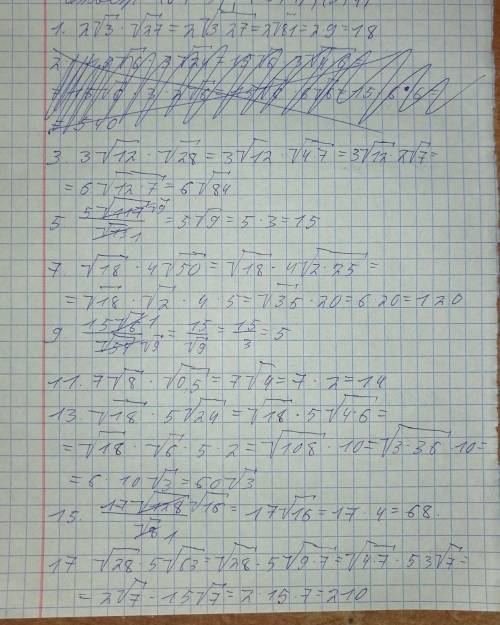 1. 2√3 · √27 = 2√3·27 = 2√81 = 2·9 = 18
3 3√12 · √28 = 3√12 · √4·7 = 3√12·2√7 =
= 6√12·7 = 6√84
5 5√117 √9 / √13 1 = 5√9 = 5·3 = 15
7 √18 · 4√50 = √18 · 4√2·25 =
= √18 · √2 · 4 · 5 = √36 · 20 = 6·20 = 120
9 15√6 1 / √54 √9 = 15/√9 = 15/3 = 5
11. 7√8 · √0,5 = 7√4 = 7 · 2 = 14
13. √18 · 5√24 = √18 · 5√4·6 =
= √18 · √6 · 5 · 2 = √108 · 10 = √3·36 · 10 =
= 6 · 10√3 = 60√3
15. 17√128 √16 / √8 1 = 17√16 = 17 · 4 = 68.
17 √28 · 5√63 = √28 · 5√9·7 = √4·7 · 5·3√7 =
= 2√7 · 15√7 = 2·15·7 = 210